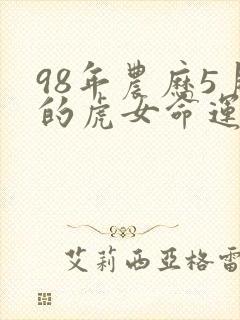 98年農曆5月
的虎女命運
艾莉西亞格雷